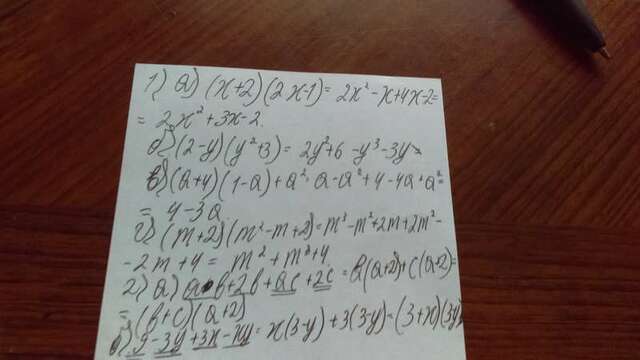 1) а) (x+2)(2x-1) = 2x² - x + 4x - 2 =
= 2x² + 3x - 2
б) (2-y)(y²+3) = 2y² + 6 - y³ - 3y
в) (a+4)(1-a) + a² = a - a² + 4 - 4a + a² =
= 4 - 3a
г) (m+2)(m²-m+2) = m³ - m² + 2m + 2m² -
- 2m + 4 = m² + m³ + 4
2) а) ab + 2b + ac + 2c = b(a+2) + c(a+2) =
= (b+c)(a+2)
9 - 3y + 3x - xy = x(3-y) + 3(3-y) = (3+x)(3-y)